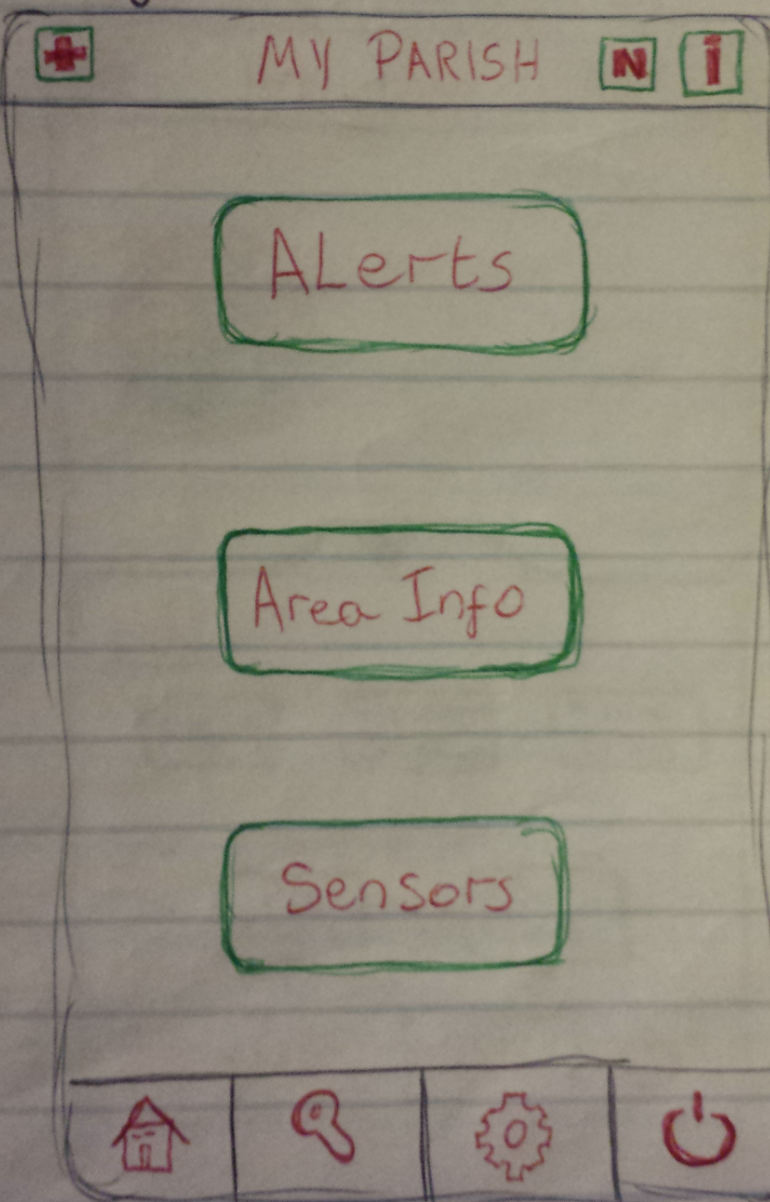 MY PARISH N i
ALerts
Area Info
Sensors